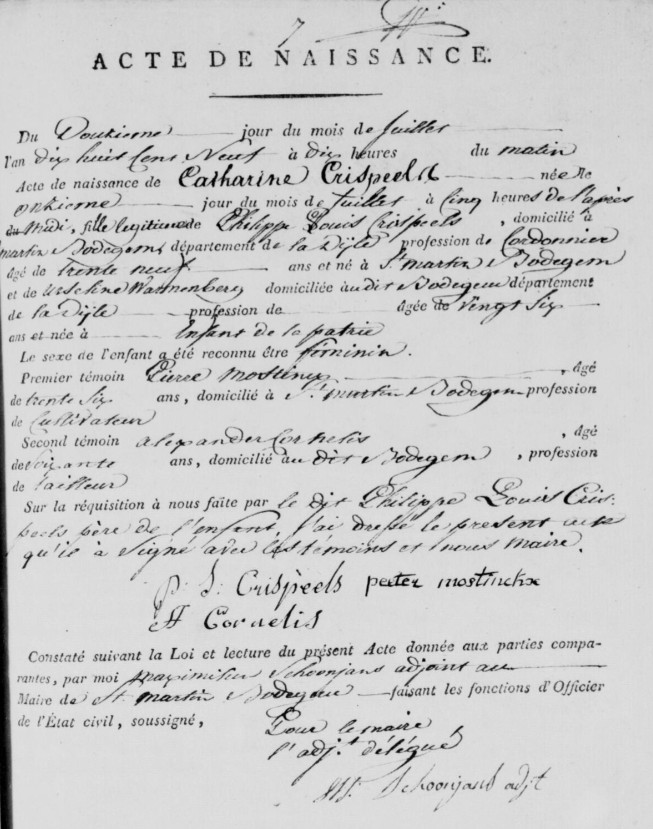 7
ACTE DE NAISSANCE.
Du Douzieme jour du mois de Juillet
l'an dix huit Cent Neuf à dix heures du matin
Acte de naissance de Catharine Crispeels née le
onzieme jour du mois de Juillet à Cinq heures de l'après
du Midi, fille legitime de Philippe Louis Crispeels, domicilié à
martin Bodegem, département de la Dijle profession de Cordonnier
âgé de trente neuf ans et né à St martin Bodegem
et de Urseline Wannenberg domiciliée au dit Bodegem département
de la Dijle profession de âgée de vingt Six
ans et née à Enfant de la patrie
Le sexe de l'enfant a été reconnu être féminin.
Premier témoin Pierre mostinckx, âgé
de trente Six ans, domicilié à St martin Bodegem profession
de Cultivateur
Second témoin alexander Cornelis, âgé
de Soixante ans, domicilié au dit Bodegem, profession
de tailleur
Sur la réquisition à nous faite par le dit Philippe Louis Cris-
peels père de l'enfant, j'ai dressé le present acte
qu'il à Signé avec les témoins et nous maire.
P: L: Crispeels peeter mostinckx
A Cornelis
Constaté suivant la Loi et lecture du présent Acte donnée aux parties compa-
rantes, par moi maximilien Schoonjans adjoint au
Maire de St. martin Bodegem faisant les fonctions d'Officier
de l'État civil, soussigné,
Pour le maire
l'adjt. délégué
M. Schoonjans adjt